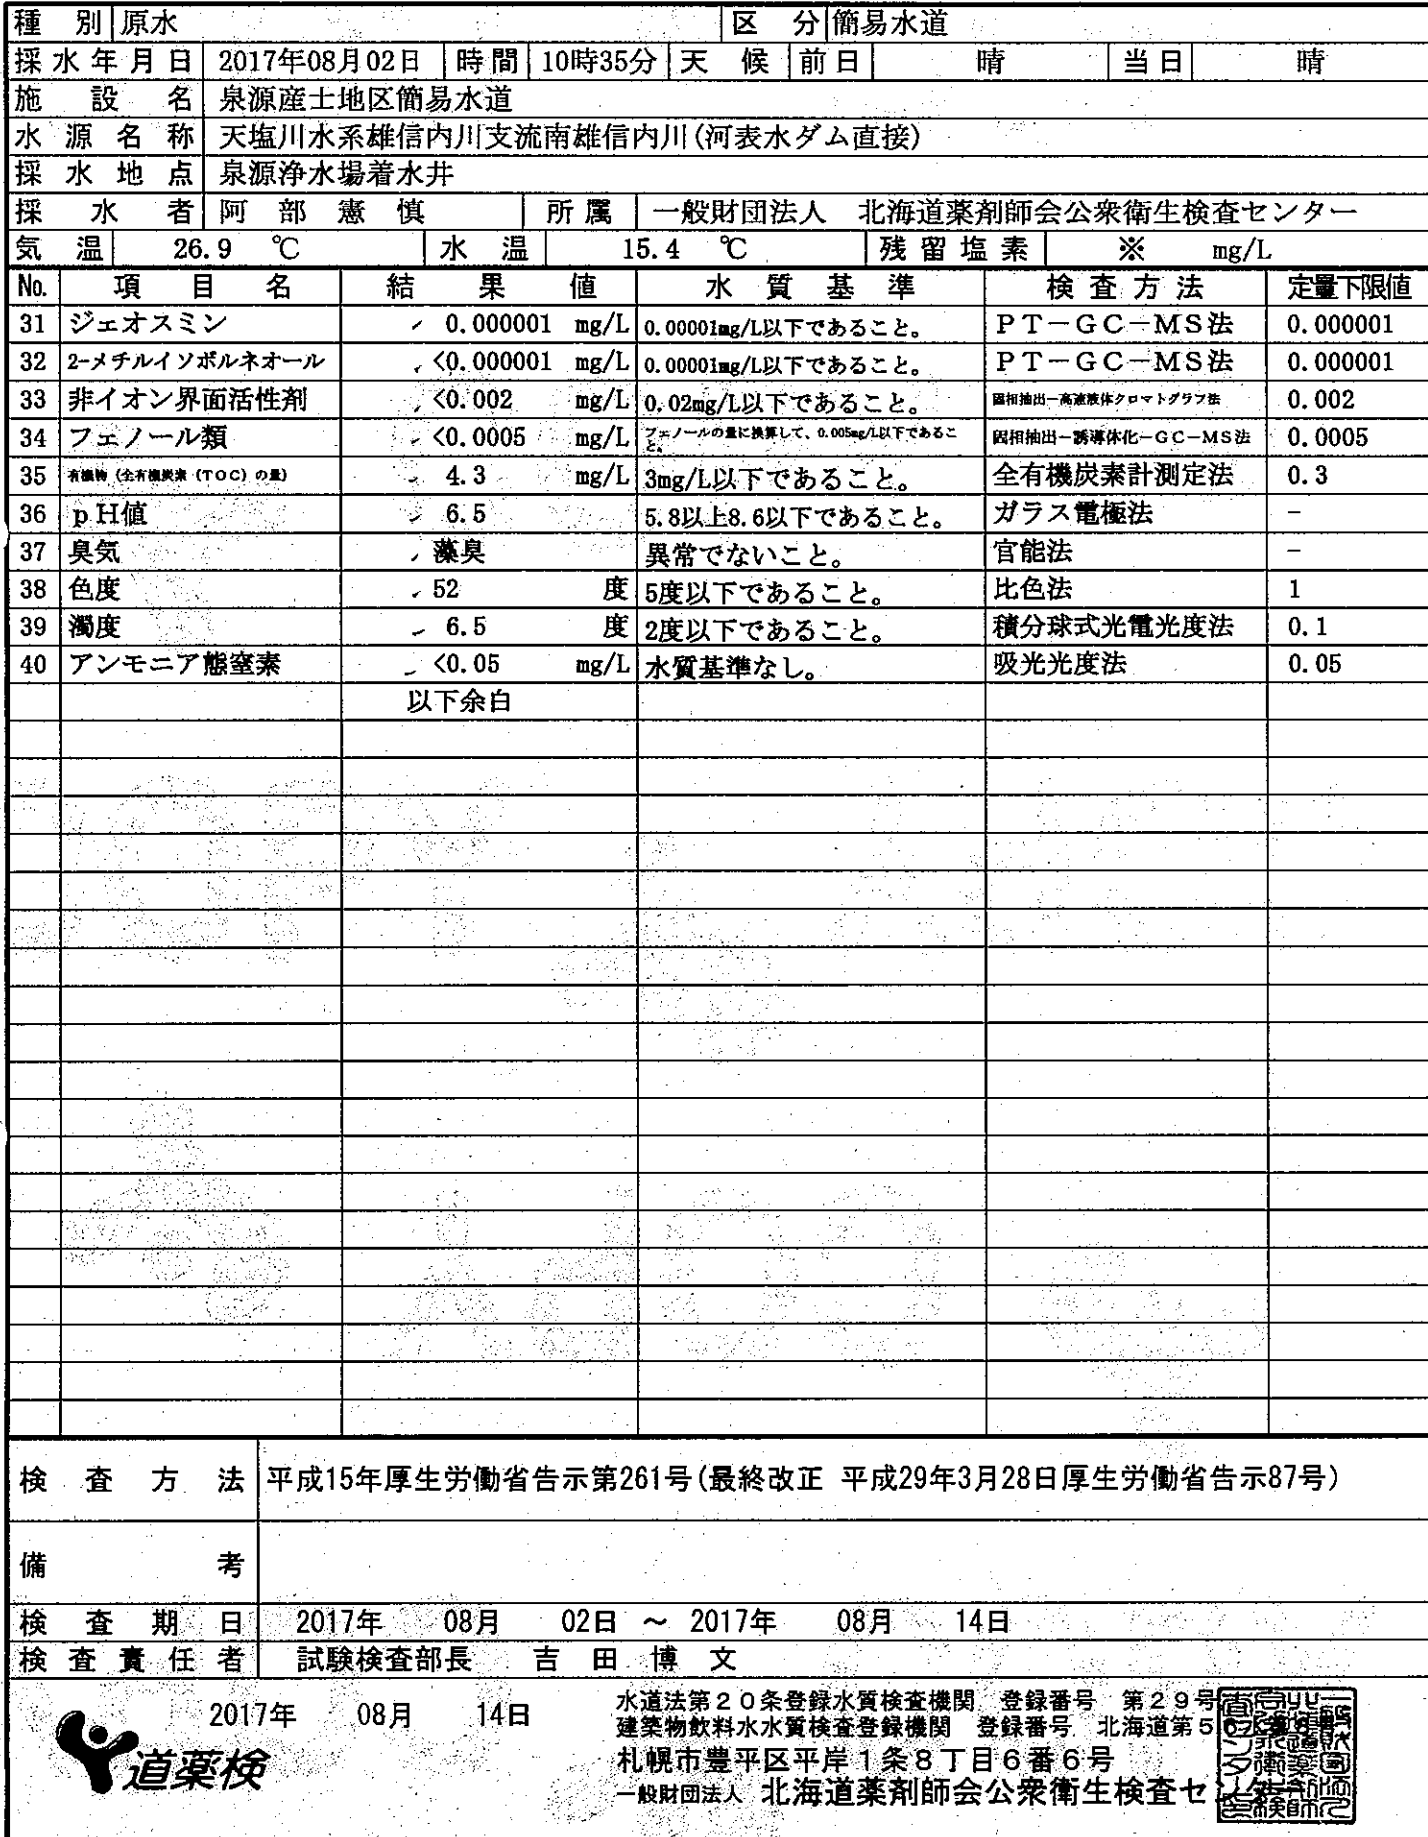 種別 原水 区分 簡易水道
採水年月日 2017年08月02日 時間 10時35分 天候 前日 晴 当日 晴
施設名 泉源産士地区簡易水道
水源名称 天塩川水系雄信内川支流南雄信内川(河表水ダム直接)
採水地点 泉源浄水場着水井
採水者 阿部憲慎 所属 一般財団法人 北海道薬剤師会公衆衛生検査センター
気温 26.9 ℃ 水温 15.4 ℃ 残留塩素 ※ mg/L
No. 項目名 結果値 水質基準 検査方法 定量下限値
31 ジェオスミン 0.000001 mg/L 0.00001mg/L以下であること。 PT－GC－MS法 0.000001
32 2-メチルイソボルネオール <0.000001 mg/L 0.00001mg/L以下であること。 PT－GC－MS法 0.000001
33 非イオン界面活性剤 <0.002 mg/L 0.02mg/L以下であること。 固相抽出－高速液体クロマトグラフ法 0.002
34 フェノール類 <0.0005 mg/L フェノールの量に換算して、0.005mg/L以下であること。 固相抽出－誘導体化－GC－MS法 0.0005
35 有機物（全有機炭素（TOC）の量） 4.3 mg/L 3mg/L以下であること。 全有機炭素計測定法 0.3
36 pH値 6.5 5.8以上8.6以下であること。 ガラス電極法 －
37 臭気 藻臭 異常でないこと。 官能法 －
38 色度 52 度 5度以下であること。 比色法 1
39 濁度 6.5 度 2度以下であること。 積分球式光電光度法 0.1
40 アンモニア態窒素 <0.05 mg/L 水質基準なし。 吸光光度法 0.05
以下余白
検査方法 平成15年厚生労働省告示第261号(最終改正 平成29年3月28日厚生労働省告示87号)
備考
検査期日 2017年 08月 02日 ～ 2017年 08月 14日
検査責任者 試験検査部長 吉田博文
2017年 08月 14日
水道法第20条登録水質検査機関 登録番号 第29号
建築物飲料水水質検査登録機関 登録番号 北海道第5
札幌市豊平区平岸1条8丁目6番6号
一般財団法人 北海道薬剤師会公衆衛生検査センター
道薬検